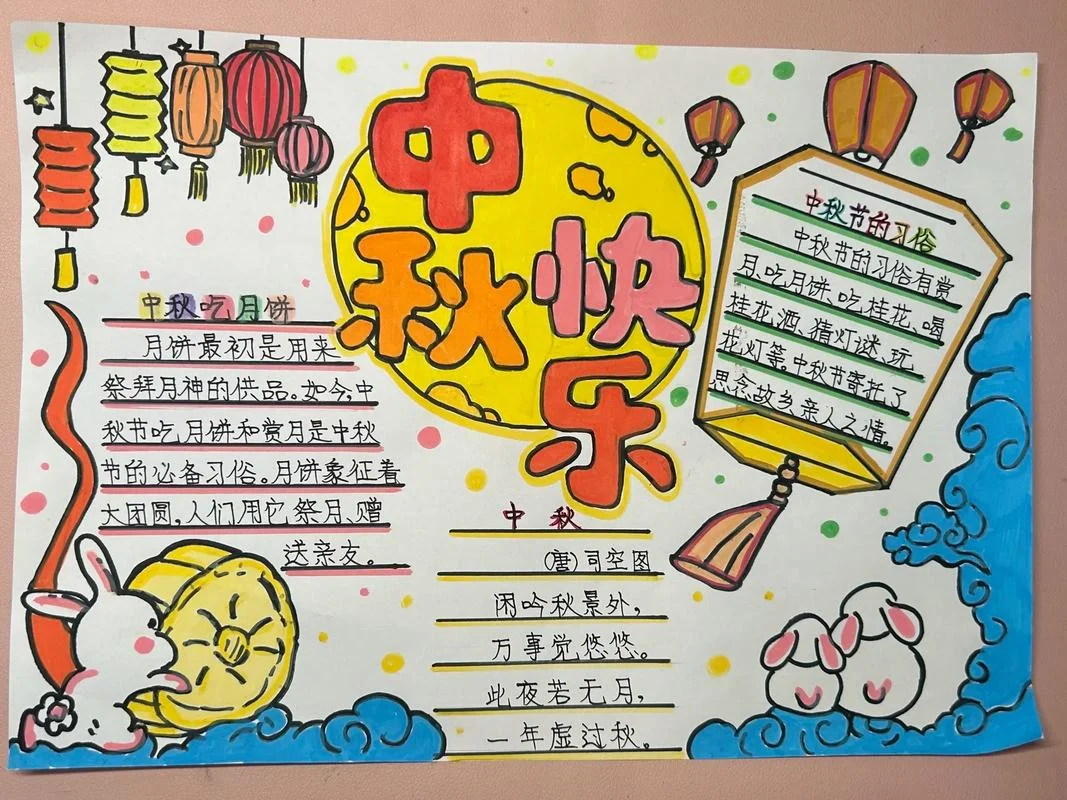 中秋快乐
中秋吃月饼
月饼最初是用来
祭拜月神的供品。如今,中
秋节吃月饼和赏月是中秋
节的必备习俗。月饼象征着
大团圆,人们用它祭月、赠
送亲友。
中秋
(唐)司空图
闲吟秋景外,
万事觉悠悠。
此夜若无月,
一年虚过秋。
中秋节的习俗
中秋节的习俗有赏
月、吃月饼、吃桂花、喝
桂花酒、猜灯谜、玩
花灯等。中秋节寄托了
思念故乡亲人之情。